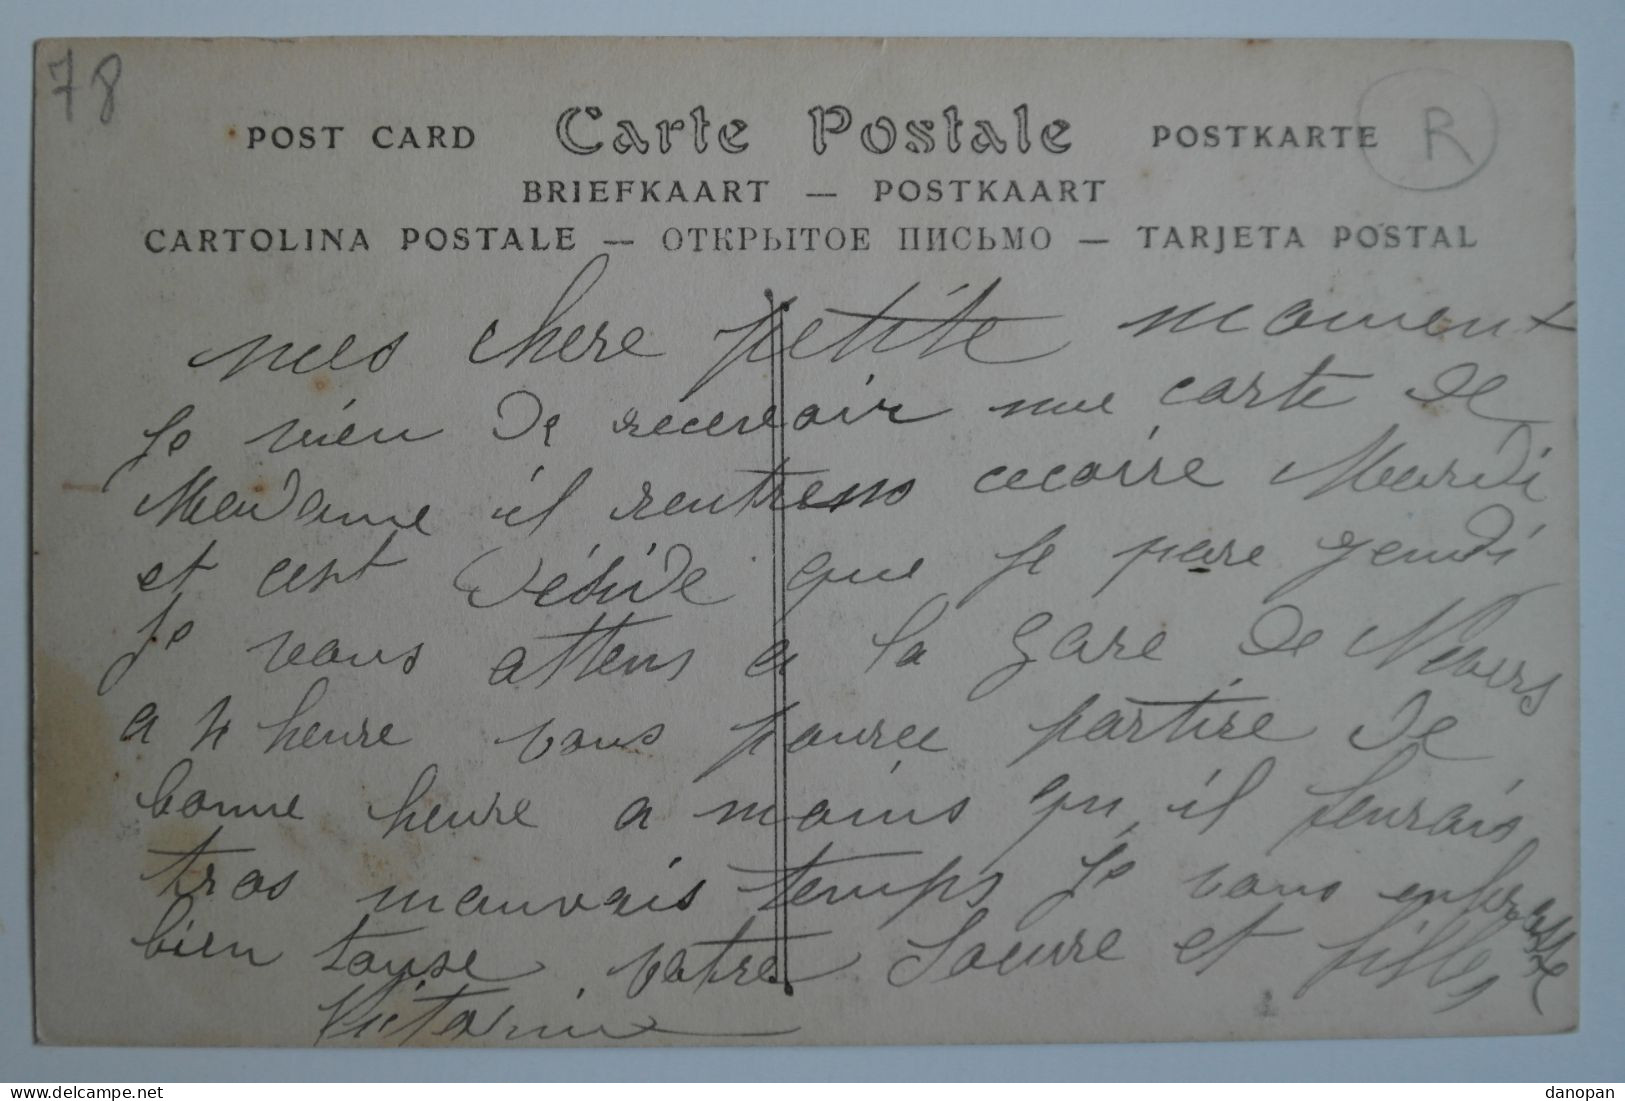 78
POST CARD Carte Postale POSTKARTE R
BRIEFKAART — POSTKAART
CARTOLINA POSTALE — ОТКРЫТОЕ ПИСЬМО — TARJETA POSTAL
mes chere petite moment
Je vien de recevoir une carte de
Madame il rentrens cecoire Mardi
et cest déside que je pare jendi
Je vous attens a la gare de Nevers
a 4 heure vous pouree partire de
bonne heure a moins qu'il feurais
tras mauvais temps Je vous enbrasse
bien touse votre Soeure et fille
Victorine
danopan